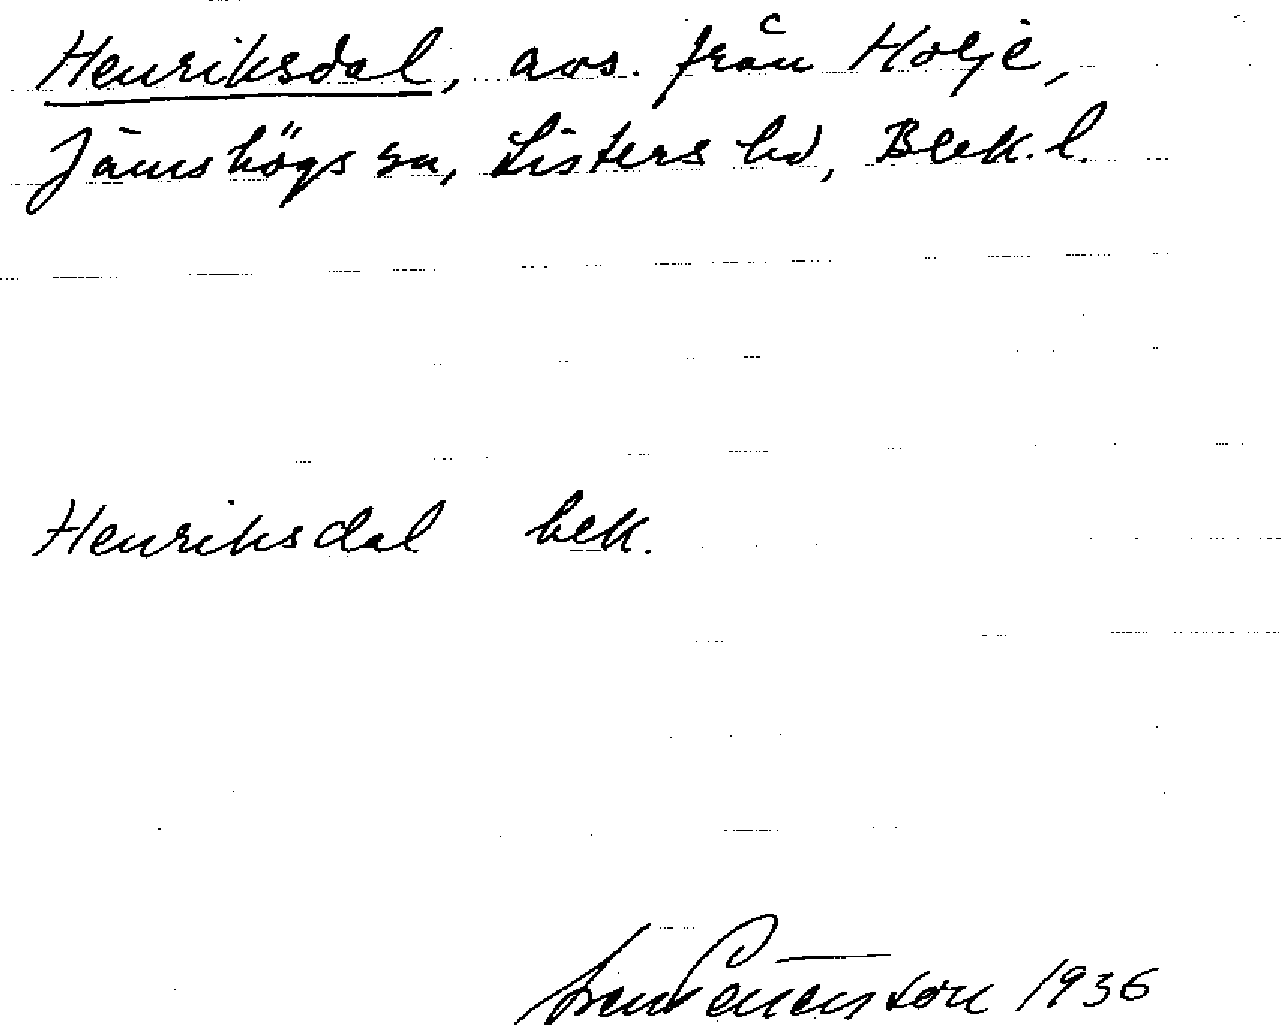 Henriksdal, avs. från Holje,
Jämshögs sn, Listers hd, Blek. l.
Henriksdal bek.
1936